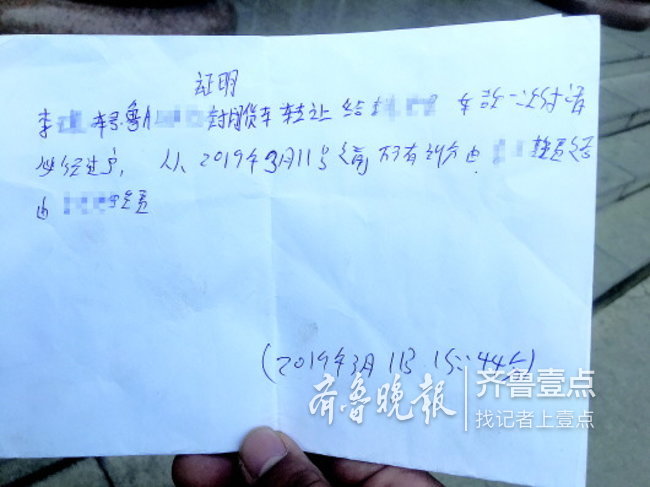 证明
李 车号鲁A 封闭货车转让给 车款一次付清
必经过户, 从2019年3月11号之前所有 由
由 负责
(2019年3月11日 15:44分)
齐鲁晚报 齐鲁壹点
找记者上壹点